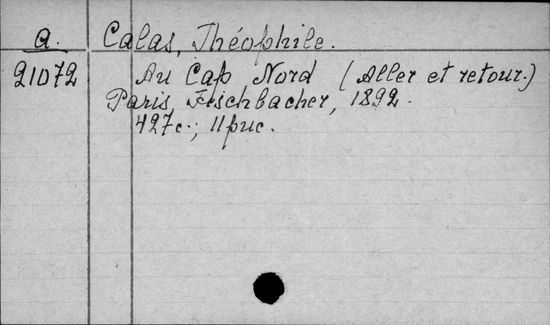 a. Calas, Théophile.
21072 Au Cap Nord (Aller et retour.)
Paris, Fischbacher, 1892.
427c.; 11рис.